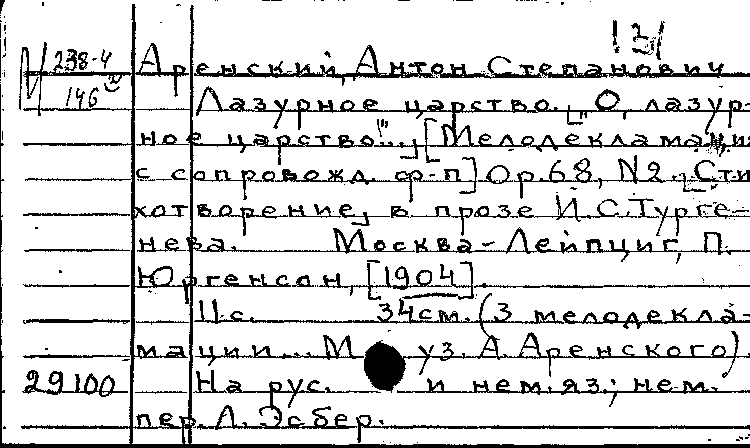 131
238-4 Аренский, Антон Степанович
146
Лазурное царство. „О, лазур-
ное царство"...] [Мелодекламация
с сопровожд. ф-п] Ор. 68, N2. Сти-
хотворение в прозе И.С.Турге-
нева. Москва-Лейпциг, П.
Юргенсон, [1904].
11 с. 34см. (3 мелодекла-
мации... Муз. А. Аренского).
29100 На рус. и нем.яз.; нем.
пер. Л. Эсбер.